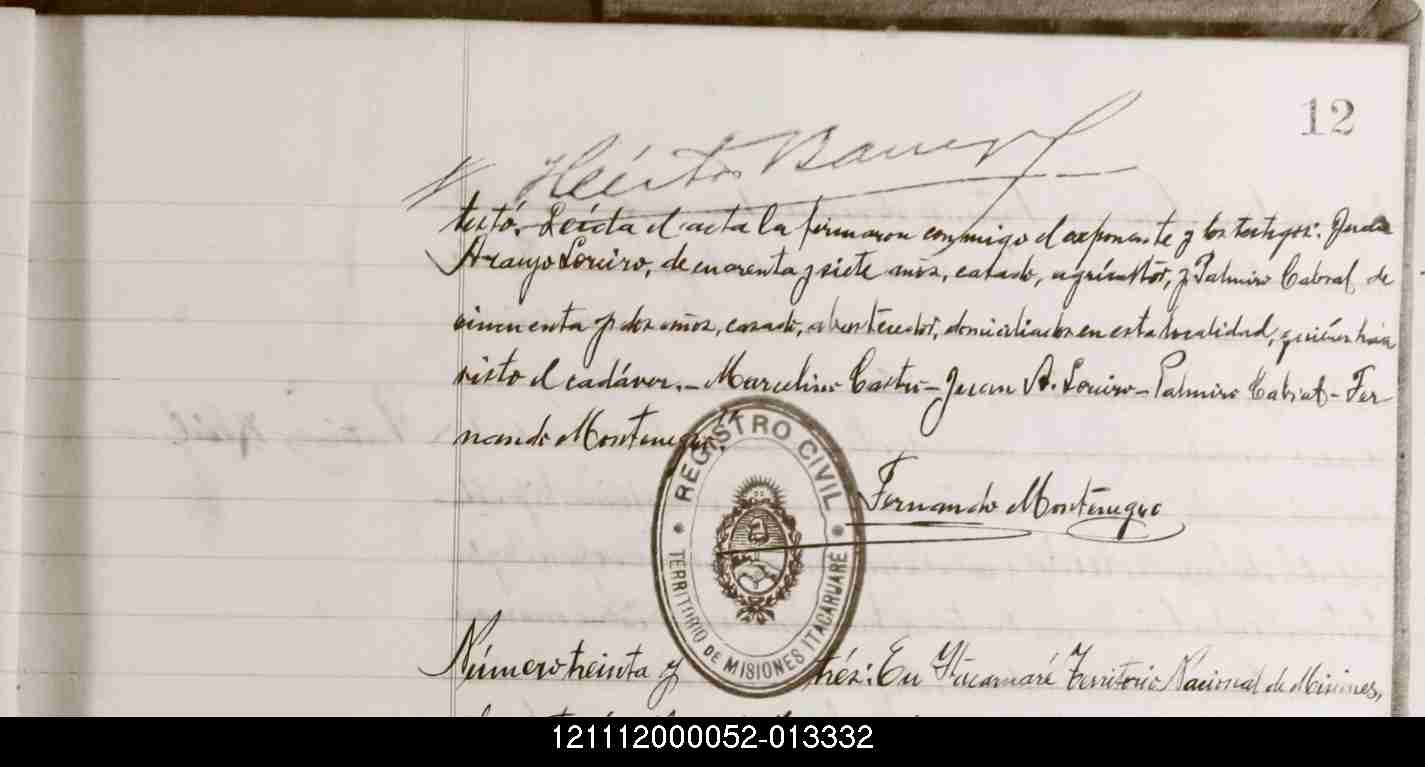 12
Héctor
testó. Leída el acta la firmaron conmigo el exponente y los testigos: Juan
Araujo Loreiro, de cuarenta y siete años, casado, agricultor, y Palmiro Cabral de
cincuenta y dos años, casado, abastecedor, domiciliados en esta localidad, quienes han
visto el cadáver. - Marcelino Castro - Juan A. Loreiro - Palmiro Cabral - Fer-
nando Montenegro.
REGISTRO CIVIL
TERRITORIO DE MISIONES ITACARUARÉ
Fernando Montenegro
Número treinta y tres: En Itacaruaré Territorio Nacional de Misiones,
121112000052-013332